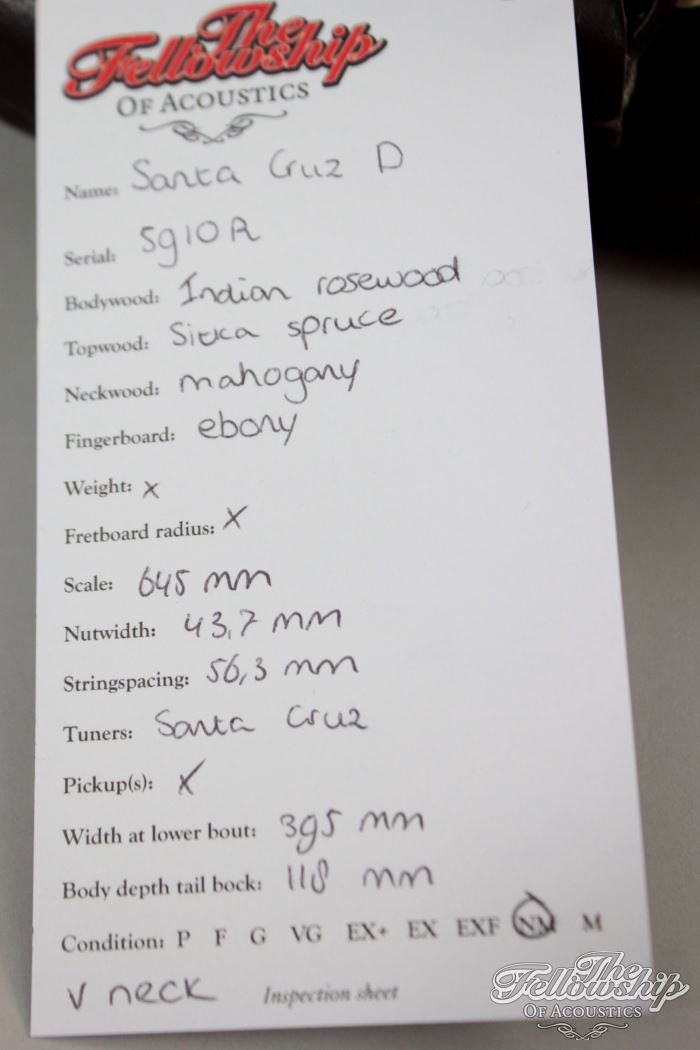 The
Fellowship
OF ACOUSTICS
Name: Santa Cruz D
Serial: 5910R
Bodywood: Indian rosewood
Topwood: Sitka spruce
Neckwood: mahogany
Fingerboard: ebony
Weight: x
Fretboard radius: x
Scale: 645 mm
Nutwidth: 43,7 mm
Stringspacing: 56,3 mm
Tuners: Santa Cruz
Pickup(s): x
Width at lower bout: 395 mm
Body depth tail bock: 118 mm
Condition: P F G VG EX+ EX EXF NM M
V neck Inspection sheet
The
Fellowship
OF ACOUSTICS